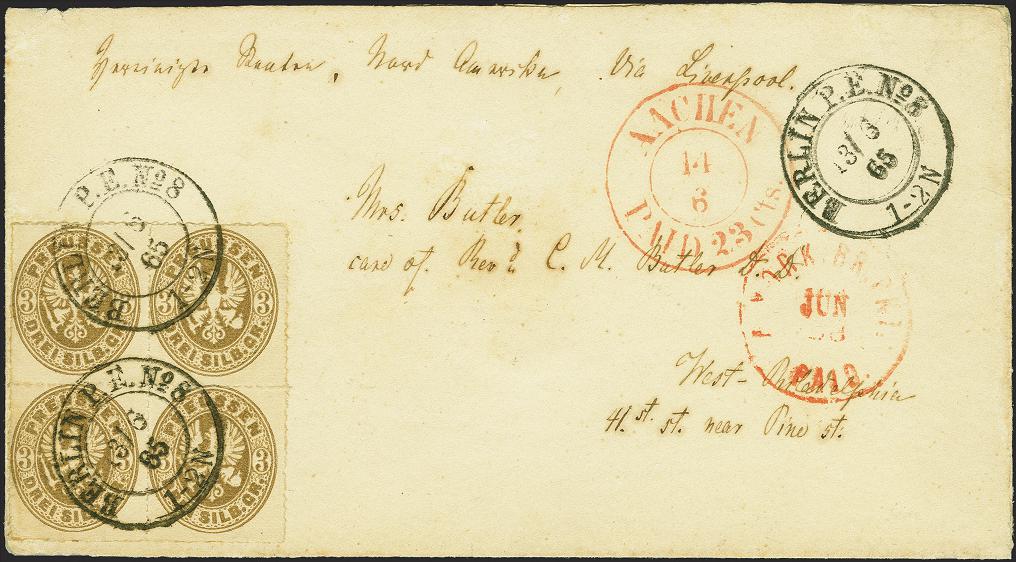 Vereinigte Staaten, Nord Amerika, Via Liverpool.
BERLIN P.E. No 8
13/6
65
1-2N
AACHEN
14
6
PAID 23 Cts.
Mrs. Butler.
care of Revd C. M. Butler D. D.
JUN
PAID
West-Philadelphia
41.st st. near Pine st.
P.E. No 8
65
1-2N
BERLIN P.E. No 8
65
1-2N
PREUSSEN
3 3
DREI SILB.GR.
PREUSSEN
3
DREI SILB.GR.
3
DREI SILB.GR.
3
SILB.GR.